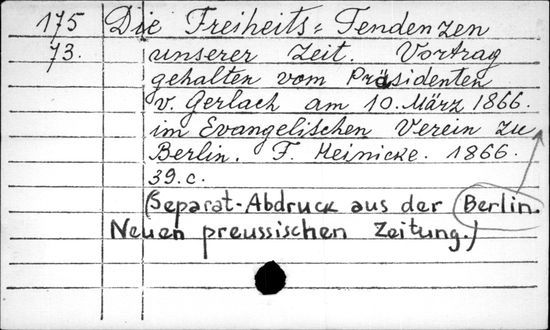 175 Die Freiheits=Tendenzen
73. unserer Zeit. Vortrag
gehalten vom Präsidenten
v. Gerlach am 10. März 1866.
im Evangelischen Verein zu
Berlin. F. Heinicke. 1866.
39.c.
(Separat-Abdruck aus der Berlin.
Neuen preussischen Zeitung.)